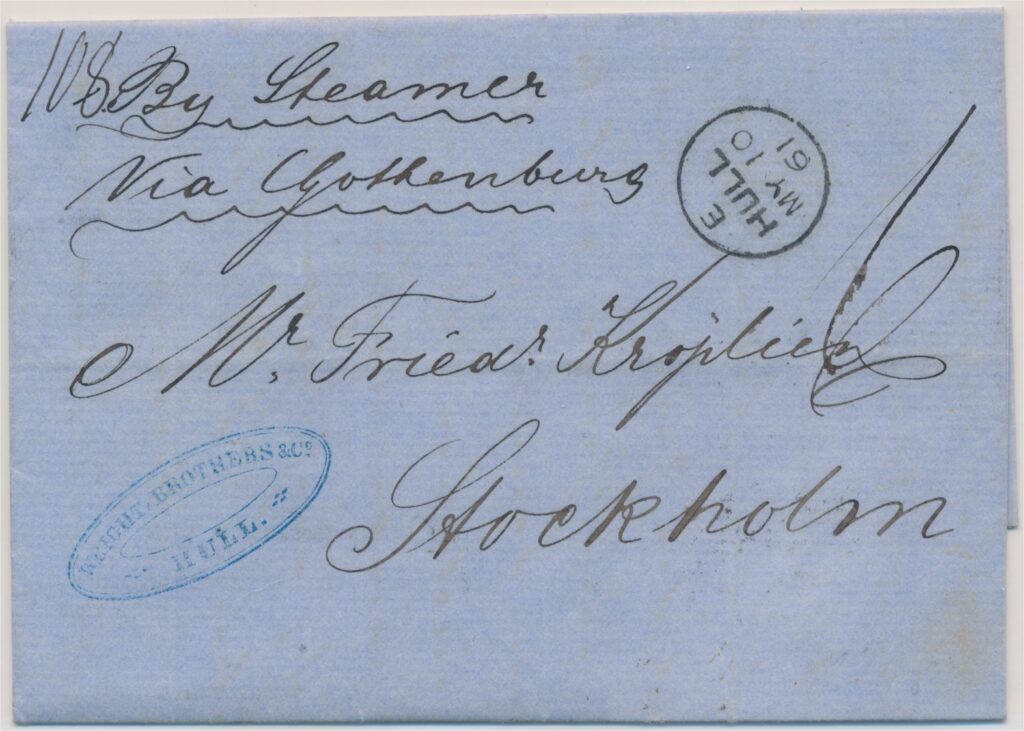 108
By Steamer
Via Gothenburg
E
HULL
MY 10
61
Mr. Friedr. Kröplien
Stockholm
WRIGHT, BROTHERS & Co
HULL.